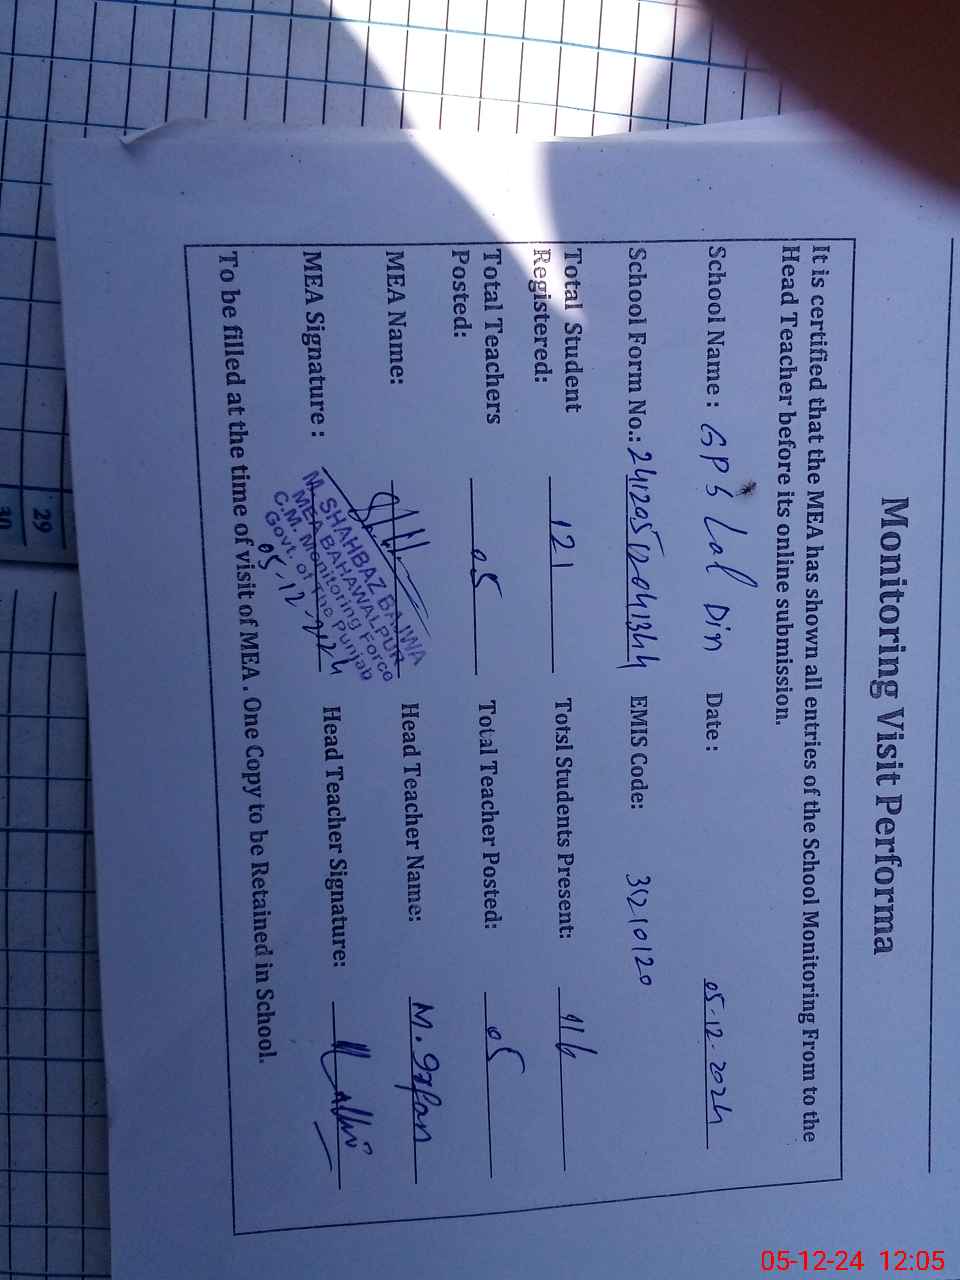 Monitoring Visit Performa
It is certified that the MEA has shown all entries of the School Monitoring From to the
Head Teacher before its online submission.
School Name : GPS Lal Din Date : 05-12-2024
School Form No.: EMIS Code:
Total Student Registered: 121 Totsl Students Present: 116
Total Teachers Posted: 05 Total Teacher Posted: 05
MEA Name: Head Teacher Name: M. Irfan
MEA Signature : Head Teacher Signature:
M. SHAHBAZ BAJWA
MEA BAHAWALPUR
C.M. Monitoring Force
Govt. of The Punjab
05-12-2024
To be filled at the time of visit of MEA . One Copy to be Retained in School.
29
30
05-12-24 12:05